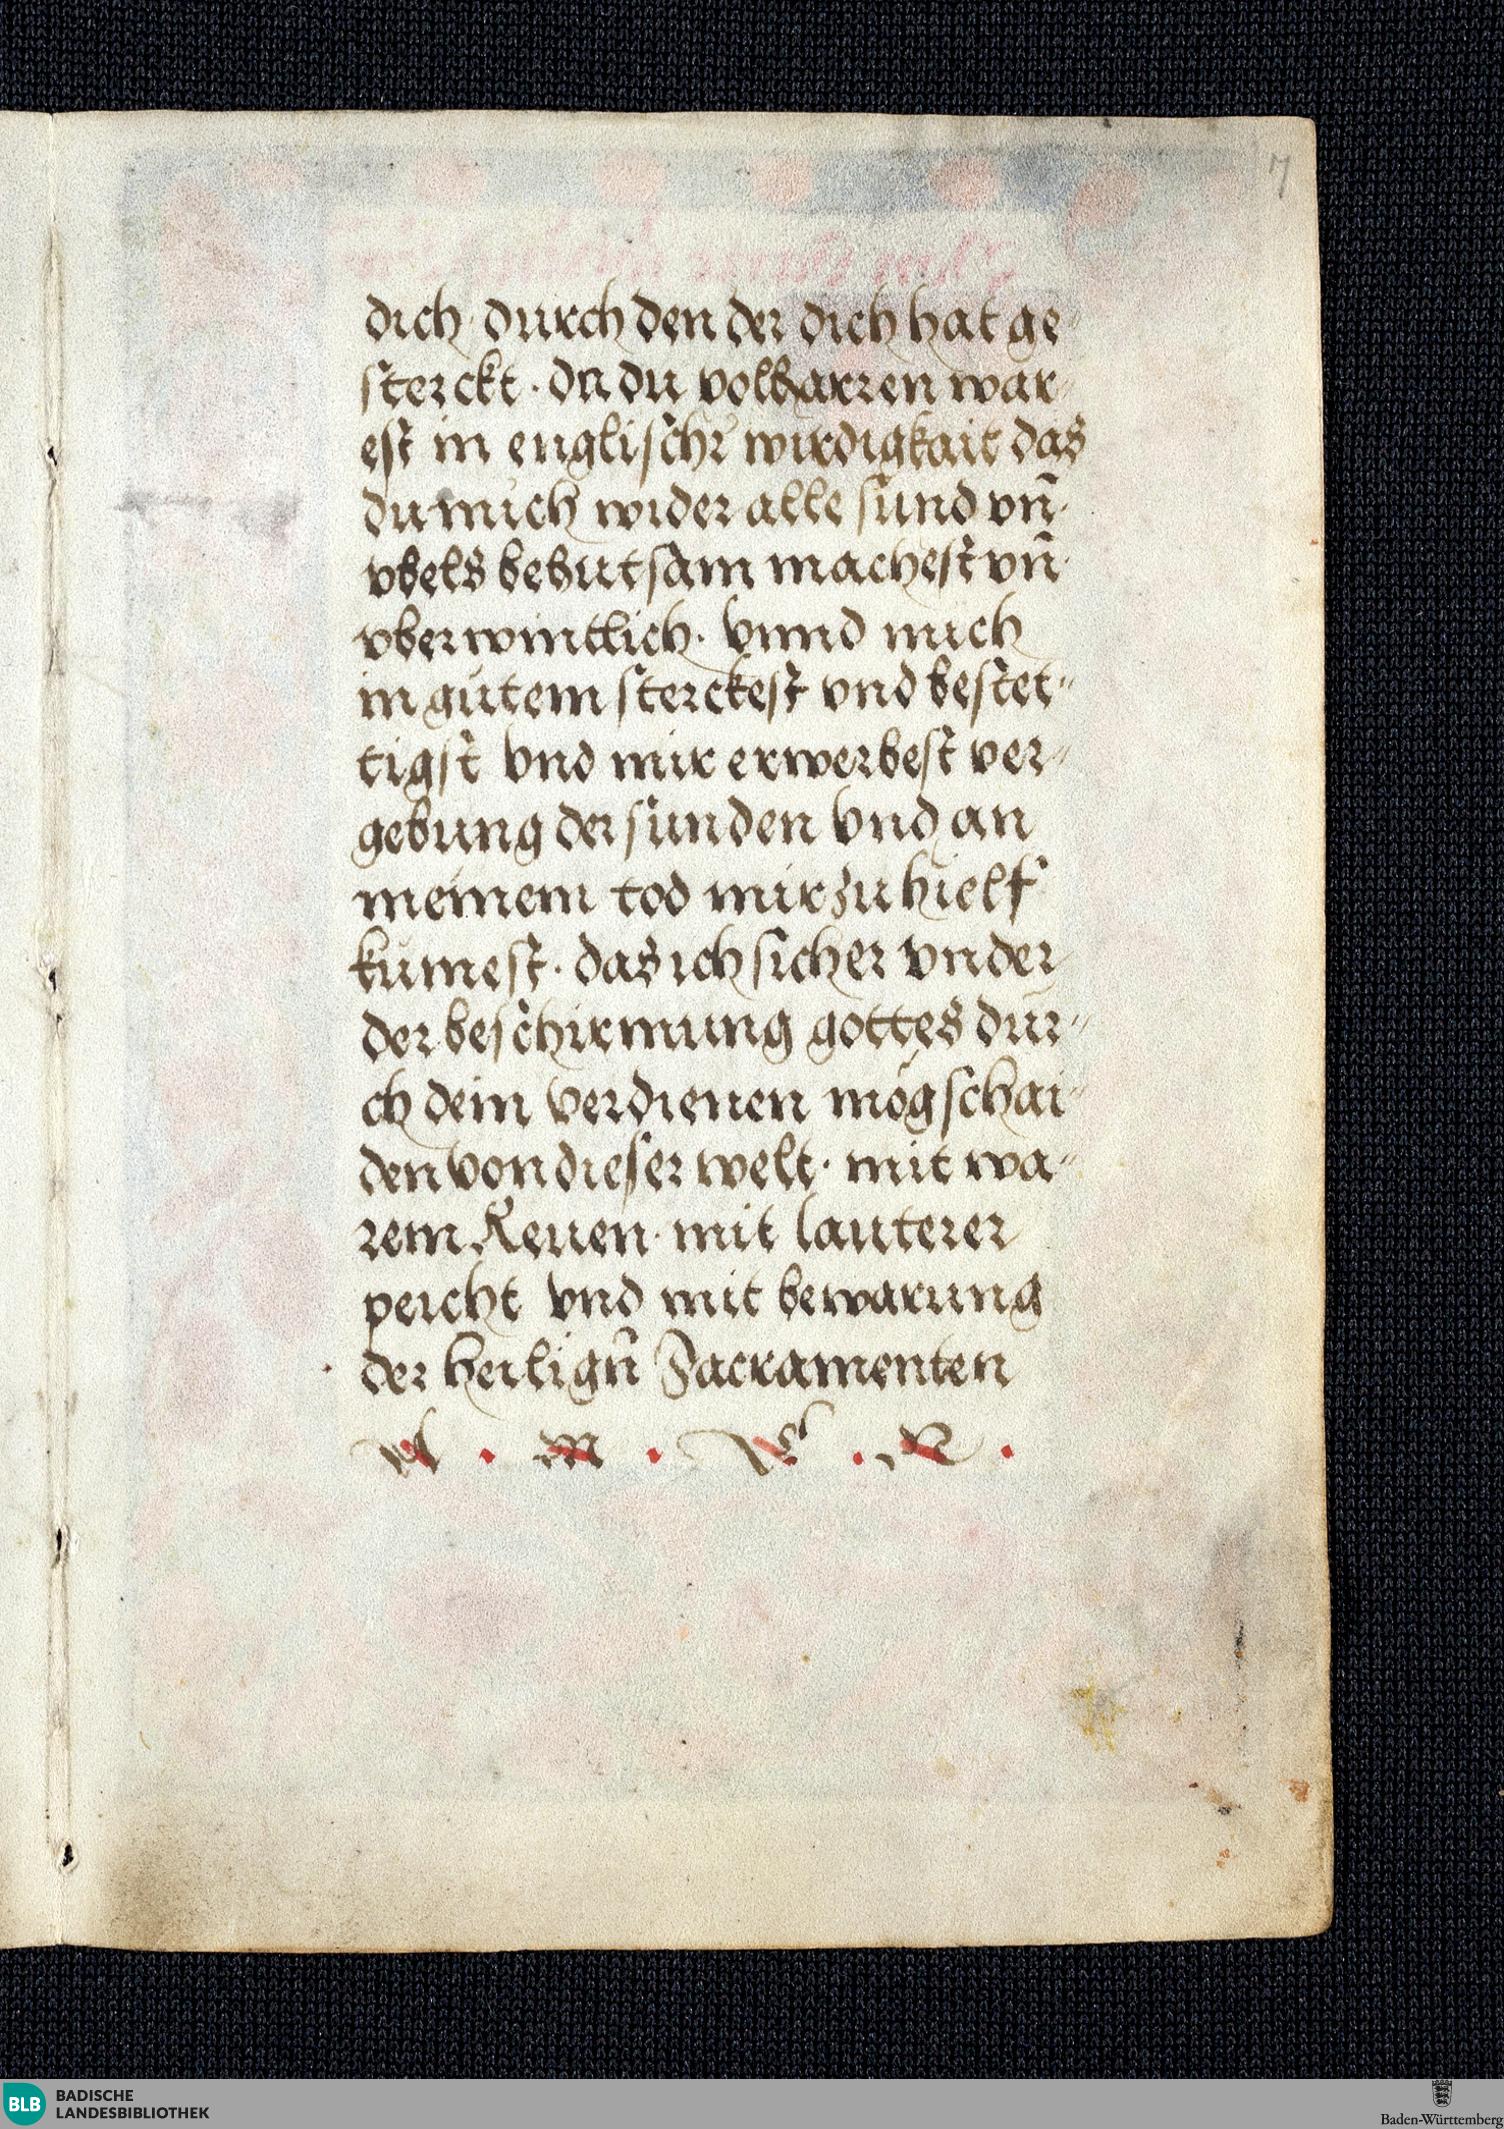 7
dich durch den der dich hat ge⸗
sterckt · da du volharren war⸗
est in englischr̄ wirdigkait das
du mich wider alle sund vn̄
vbels behutsam machest vn̄
vberwintlich · Vnnd mich
in gutem sterckest vnd bestet⸗
tigst Vnd mir erwerbest ver⸗
gebung der sunden Vnd an
meinem tod mir zu hielf
kumest · das ich sicher vnder
der beschirmung gottes dur⸗
ch dein Verdienen mög schai⸗
den von dieser welt · mit wa⸗
rem Reuen · mit lauterer
peicht vnd mit bewarung
der heilign̄ Sacramenten
A · M · E · N ·
BLB BADISCHE
LANDESBIBLIOTHEK
Baden-Württemberg